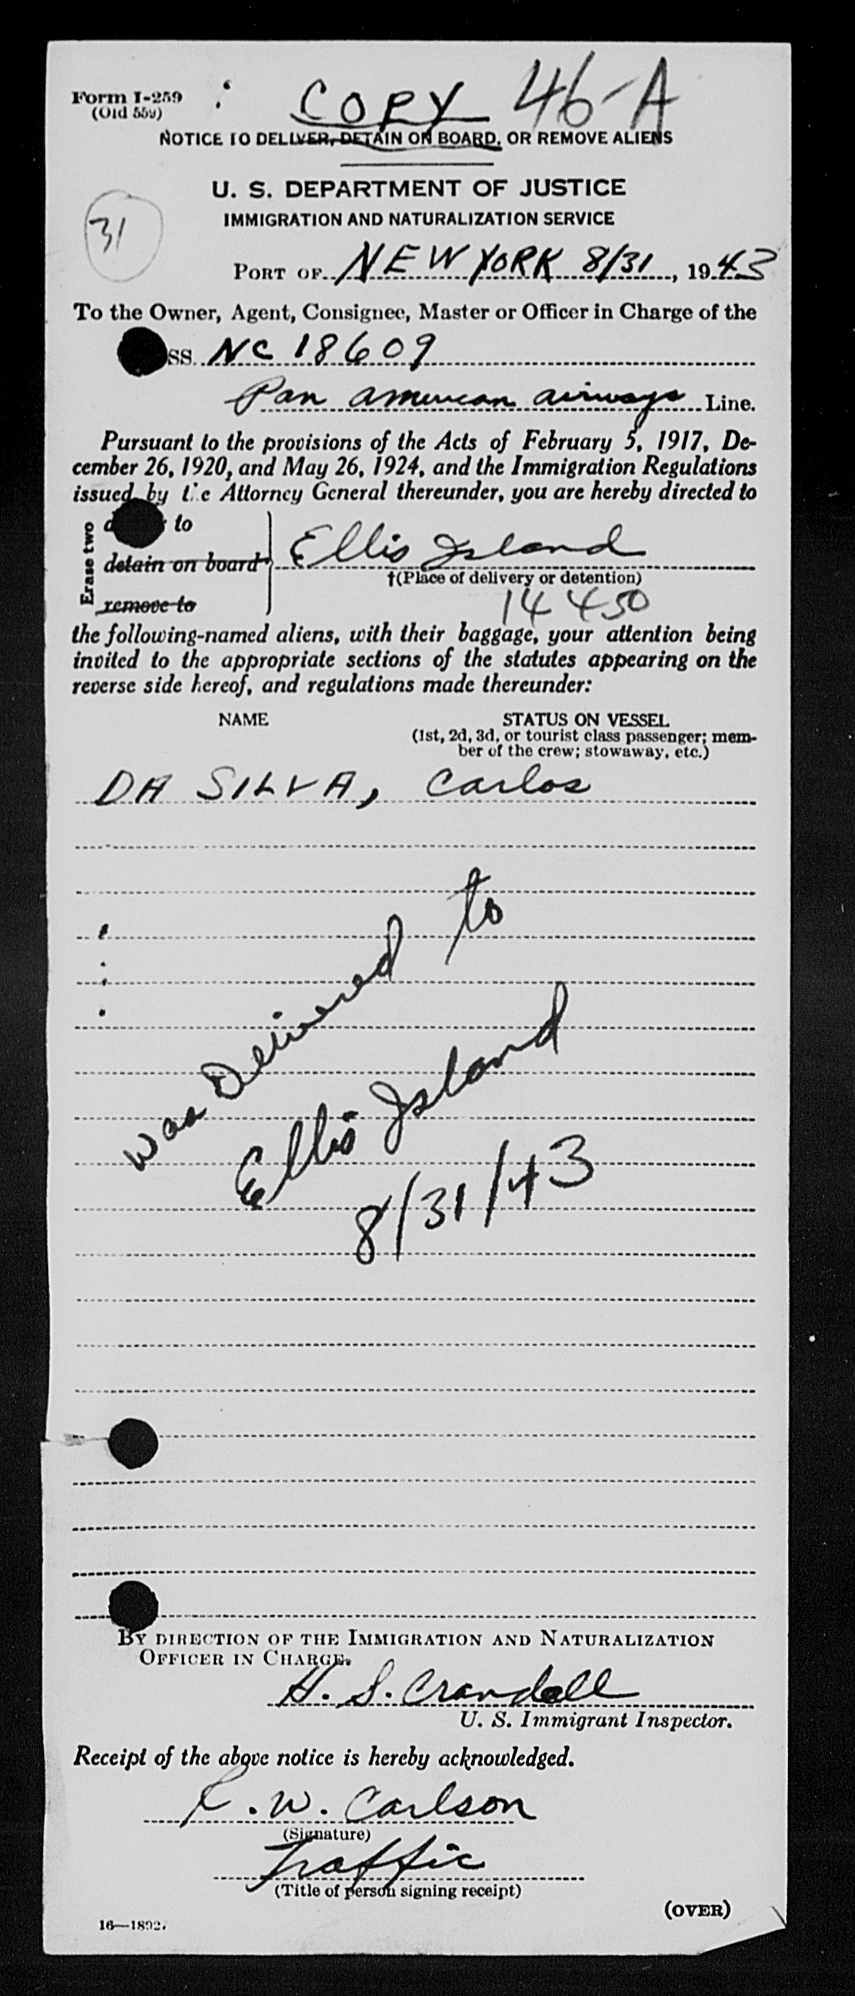 Form I-259
(Old 559)
COPY 46-A
NOTICE TO DELIVER, DETAIN ON BOARD, OR REMOVE ALIENS
U. S. DEPARTMENT OF JUSTICE
IMMIGRATION AND NATURALIZATION SERVICE
31
PORT OF NEW YORK 8/31, 1943
To the Owner, Agent, Consignee, Master or Officer in Charge of the
SS. NC 18609
Pan American Airways Line.
Pursuant to the provisions of the Acts of February 5, 1917, De-
cember 26, 1920, and May 26, 1924, and the Immigration Regulations
issued by the Attorney General thereunder, you are hereby directed to
Erase two
to
detain on board
remove to
Ellis Island
†(Place of delivery or detention)
14450
the following-named aliens, with their baggage, your attention being
invited to the appropriate sections of the statutes appearing on the
reverse side hereof, and regulations made thereunder:
NAME STATUS ON VESSEL
(1st, 2d, 3d, or tourist class passenger; mem-
ber of the crew; stowaway, etc.)
DA SILVA, Carlos
was Delivered to
Ellis Island
8/31/43
BY DIRECTION OF THE IMMIGRATION AND NATURALIZATION
OFFICER IN CHARGE.
H. S. Crandall
U. S. Immigrant Inspector.
Receipt of the above notice is hereby acknowledged.
R. W. Carlson
(Signature)
Traffic
(Title of person signing receipt)
(OVER)
16—1892.